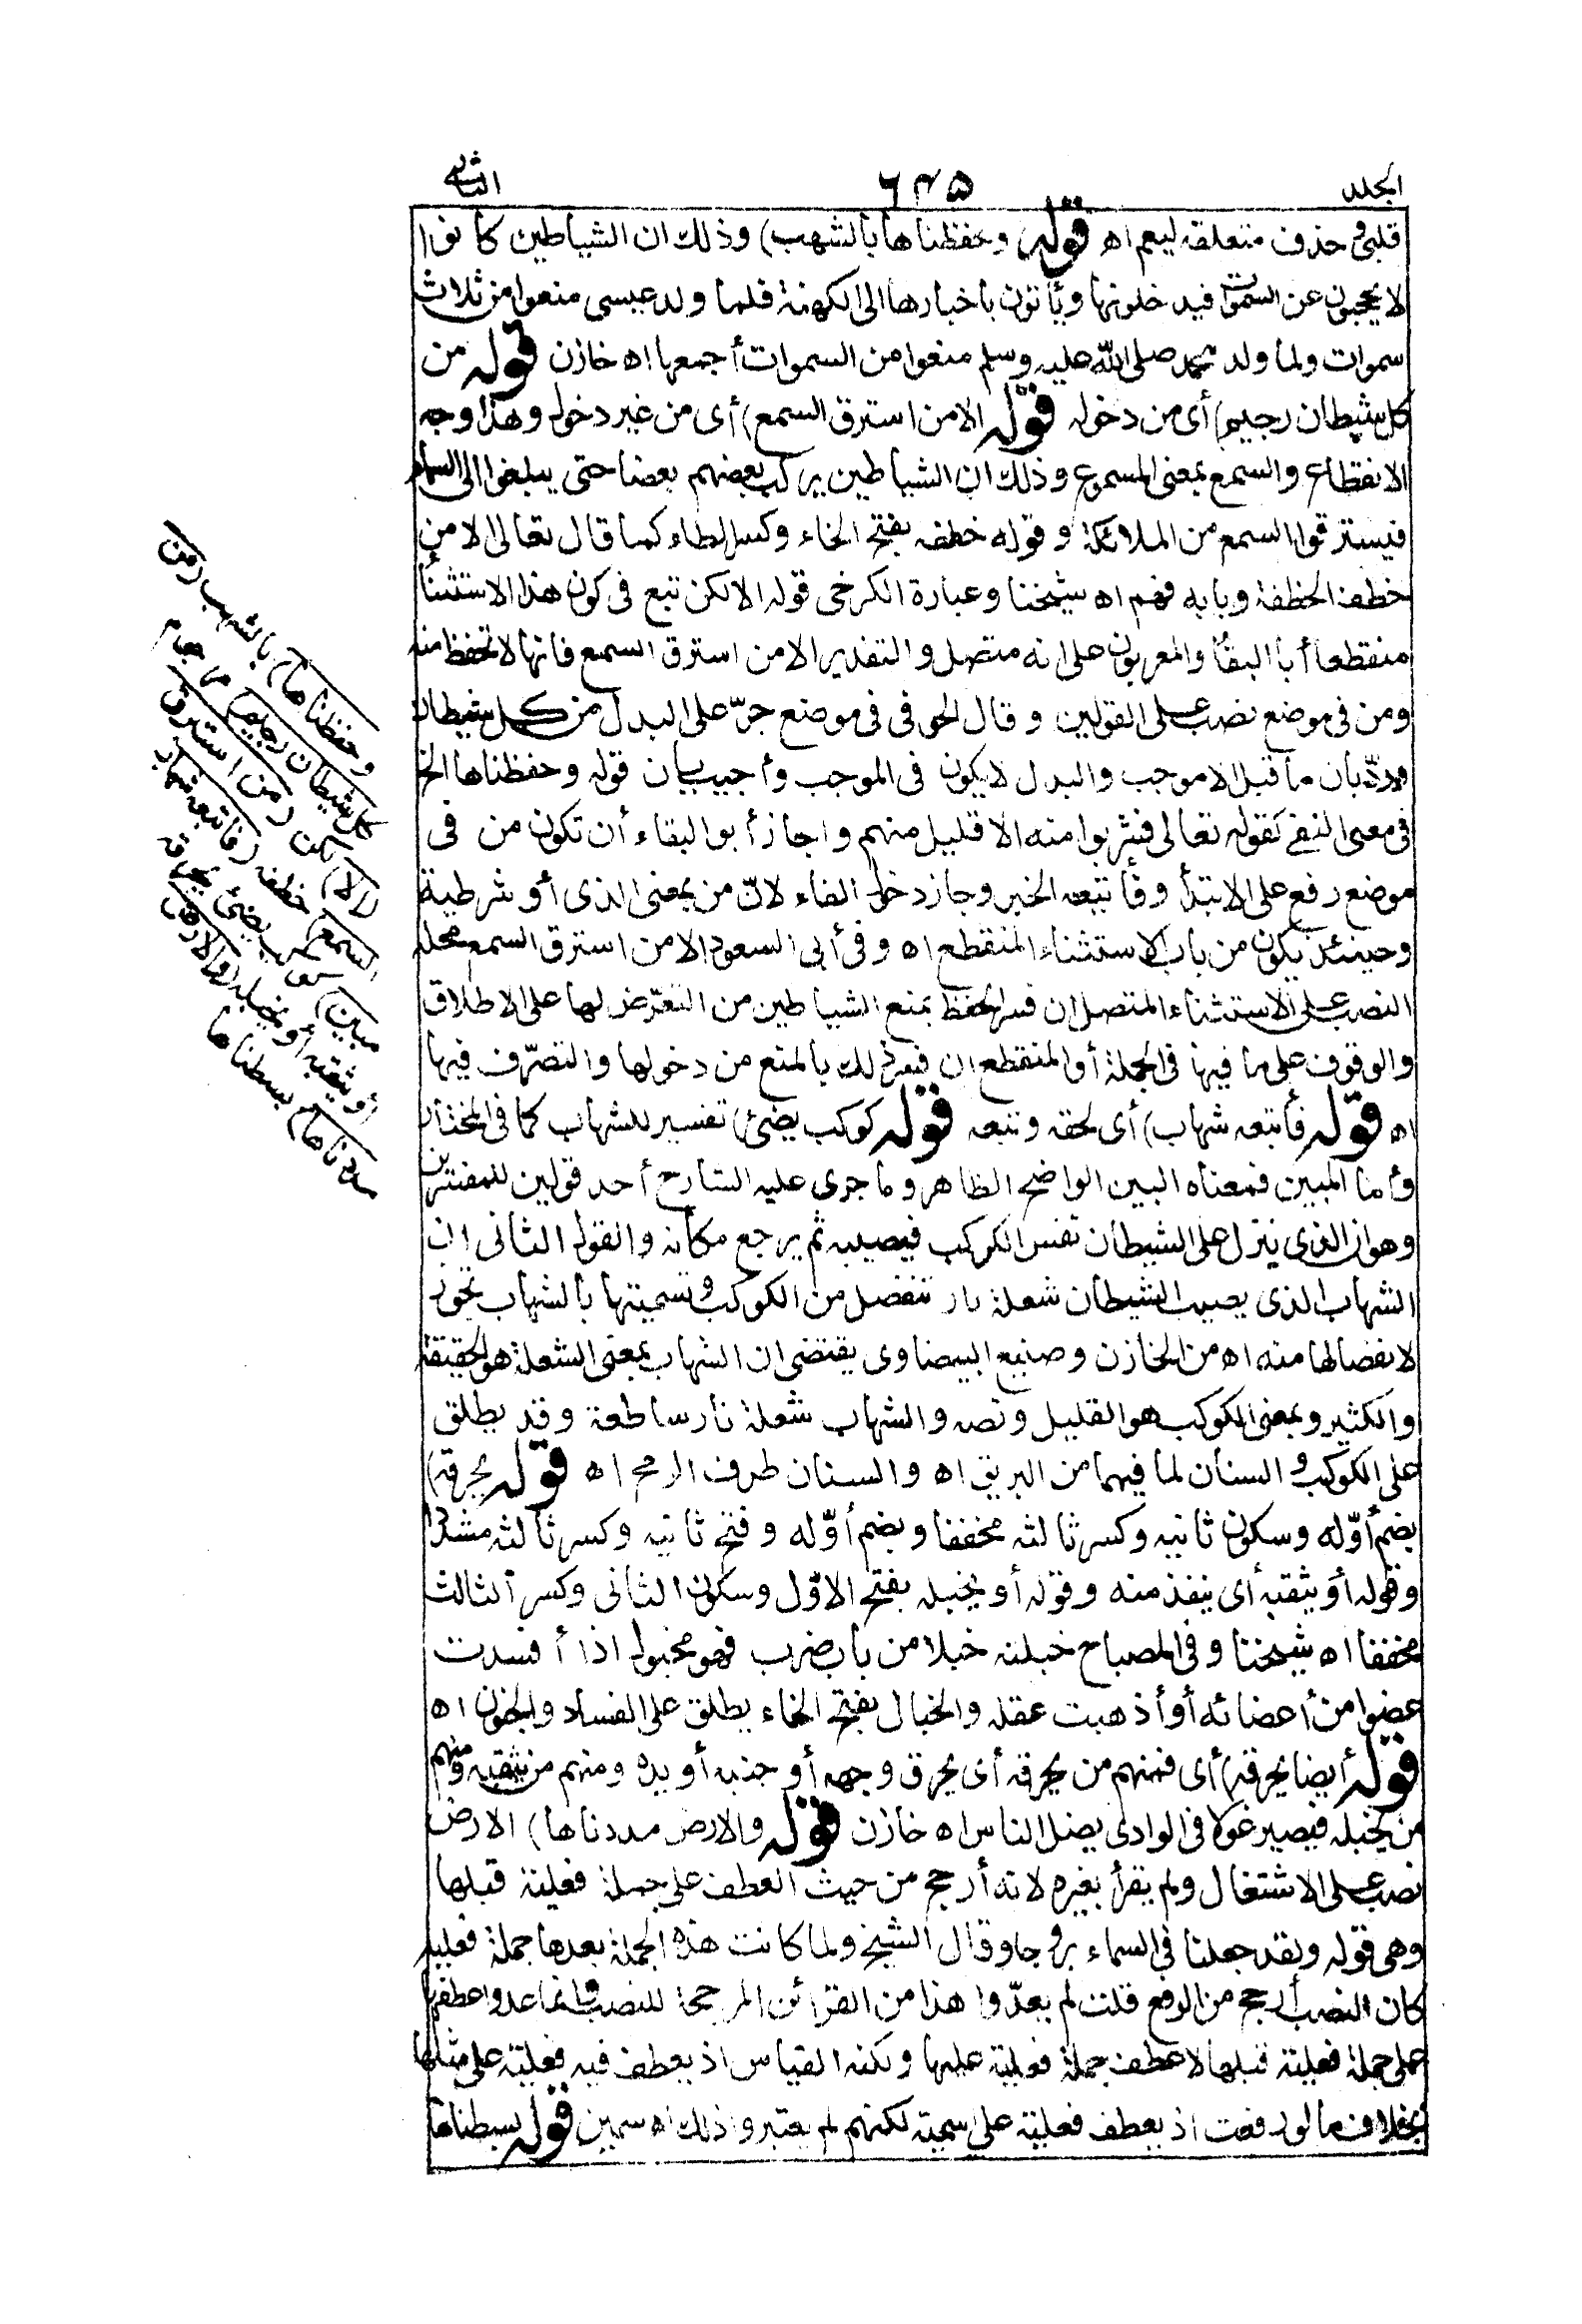 الجلد ٦٣٥ الثاني
قلبي وحذف متعلقه ليعم اه قوله وحفظناها بالشهب) وذلك ان الشياطين كانوا
لا يحجبون عن السموات فيدخلونها ويأتون باخبارها الى الكهنة فلما ولد عيسى منعوا من ثلاث
سموات ولما ولد محمد صلى الله عليه وسلم منعوا من السموات أجمعها اه خازن قوله من
كل شيطان رجيم) أى من دخوله قوله الا من استرق السمع) أى من غير دخول وهذا وجه
الانقطاع والسمع بمعنى المسموع وذلك ان الشياطين يركب بعضهم بعضا حتى يبلغوا الى السماء
فيسترقوا السمع من الملائكة وقوله خطفه بفتح الخاء وكسر الطاء كما قال تعالى الا من
خطف الخطفة وبابه فهم اه شيخنا وعبارة الكرخى قوله الا لكن تبع فى كون هذا الاستثناء
منقطعا أبا البقاء والمعربون على انه متصل والتقدير الا من استرق السمع فانها لا تحفظ منه
ومن فى موضع نصب على القولين وقال الحوفى فى موضع جرّ على البدل من كل شيطان
وردّ بان ما قبل الا موجب والبدل لا يكون فى الموجب وأجيب بان قوله وحفظناها الخ
فى معنى النفى كقوله تعالى فشربوا منه الا قليل منهم واجاز أبو البقاء أن تكون من فى
موضع رفع على الابتدأ وفأتبعه الخبر وجاز دخول الفاء لانّ من بمعنى الذى أو شرطية
وحينئذ يكون من باب الاستثناء المنقطع اه وفى أبى السعود الا من استرق السمع محله
النصب على الاستثناء المتصل ان فسر الحفظ بمنع الشياطين من التعرّض لها على الاطلاق
والوقوف على ما فيها فى الجملة أو المنقطع ان فسر ذلك بالمنع من دخولها والتصرّف فيها
اه قوله فأتبعه شهاب) أى لحقه وتبعه قوله كوكب يضئ) تفسير للشهاب كما فى المختار
وأما المبين فمعناه البين الواضح الظاهر وما جرى عليه الشارح أحد قولين للمفسّرين
وهو ان الذى ينزل على الشيطان نفس الكوكب فيصيبه ثم يرجع مكانه والقول الثانى ان
الشهاب الذى يصيب الشيطان شعلة نار تنفصل من الكوكب وتسميتها بالشهاب تجوز
لانفصالها منه اه من الخازن وصنيع البيضاوى يقتضى ان الشهاب بمعنى الشعلة هو الحقيقة
والكثير وبمعنى الكوكب هو القليل ونصه والشهاب شعلة نار ساطعة وقد يطلق
على الكوكب والسنان لما فيهما من البريق اه والسنان طرف الرمح اه قوله يحرقه)
بضم أوّله وسكون ثانيه وكسر ثالثه مخففا وبضم أوّله وفتح ثانيه وكسر ثالثه مشدّدا
وقوله أو يثقبه أى ينفذ منه وقوله أو يخبله بفتح الاوّل وسكون الثانى وكسر الثالث
مخففا اه شيخنا وفى المصباح خبلته خبلا من باب ضرب فهو مخبول اذا أفسدت
عضوا من أعضائه أو أذهبت عقله والخبال بفتح الخاء يطلق على الفساد والجنون اه
قوله أيضا يحرقه) أى فمنهم من يحرقه أى يحرق وجهه أو جنبه أو يده ومنهم من يثقبه ومنهم
من يخبله فيصير غولا فى الوادى يضل الناس اه خازن قوله والارض مددناها) الارض
نصب على الاشتغال ولم يقرأ بغيره لانه أرجح من حيث العطف على جملة فعلية قبلها
وهى قوله ولقد جعلنا فى السماء بروجا وقال الشيخ ولما كانت هذه الجملة بعدها جملة فعلية
كان النصب أرجح من الرفع قلت لم يعدّوا هذا من القرائن المرجحة للنصب وانما عدوا عطفها
على جملة فعلية قبلها لا عطف جملة فعلية عليها ولكنه القياس اذ يعطف فيه فعلية على مثلها
بخلاف ما لو رفعت اذ يعطف فعلية على اسمية لكنهم لم يعتبروا ذلك اه سمين قوله بسطناها
وحفظناها) بالشهب (من
كل شيطان رجيم)
(الا) لكن (من استرق
السمع) خطفه (فاتبعه شهاب
مبين) كوكب يضئ يحرقه
أو يثقبه أو يخبله (والارض
مددناها) بسطناها